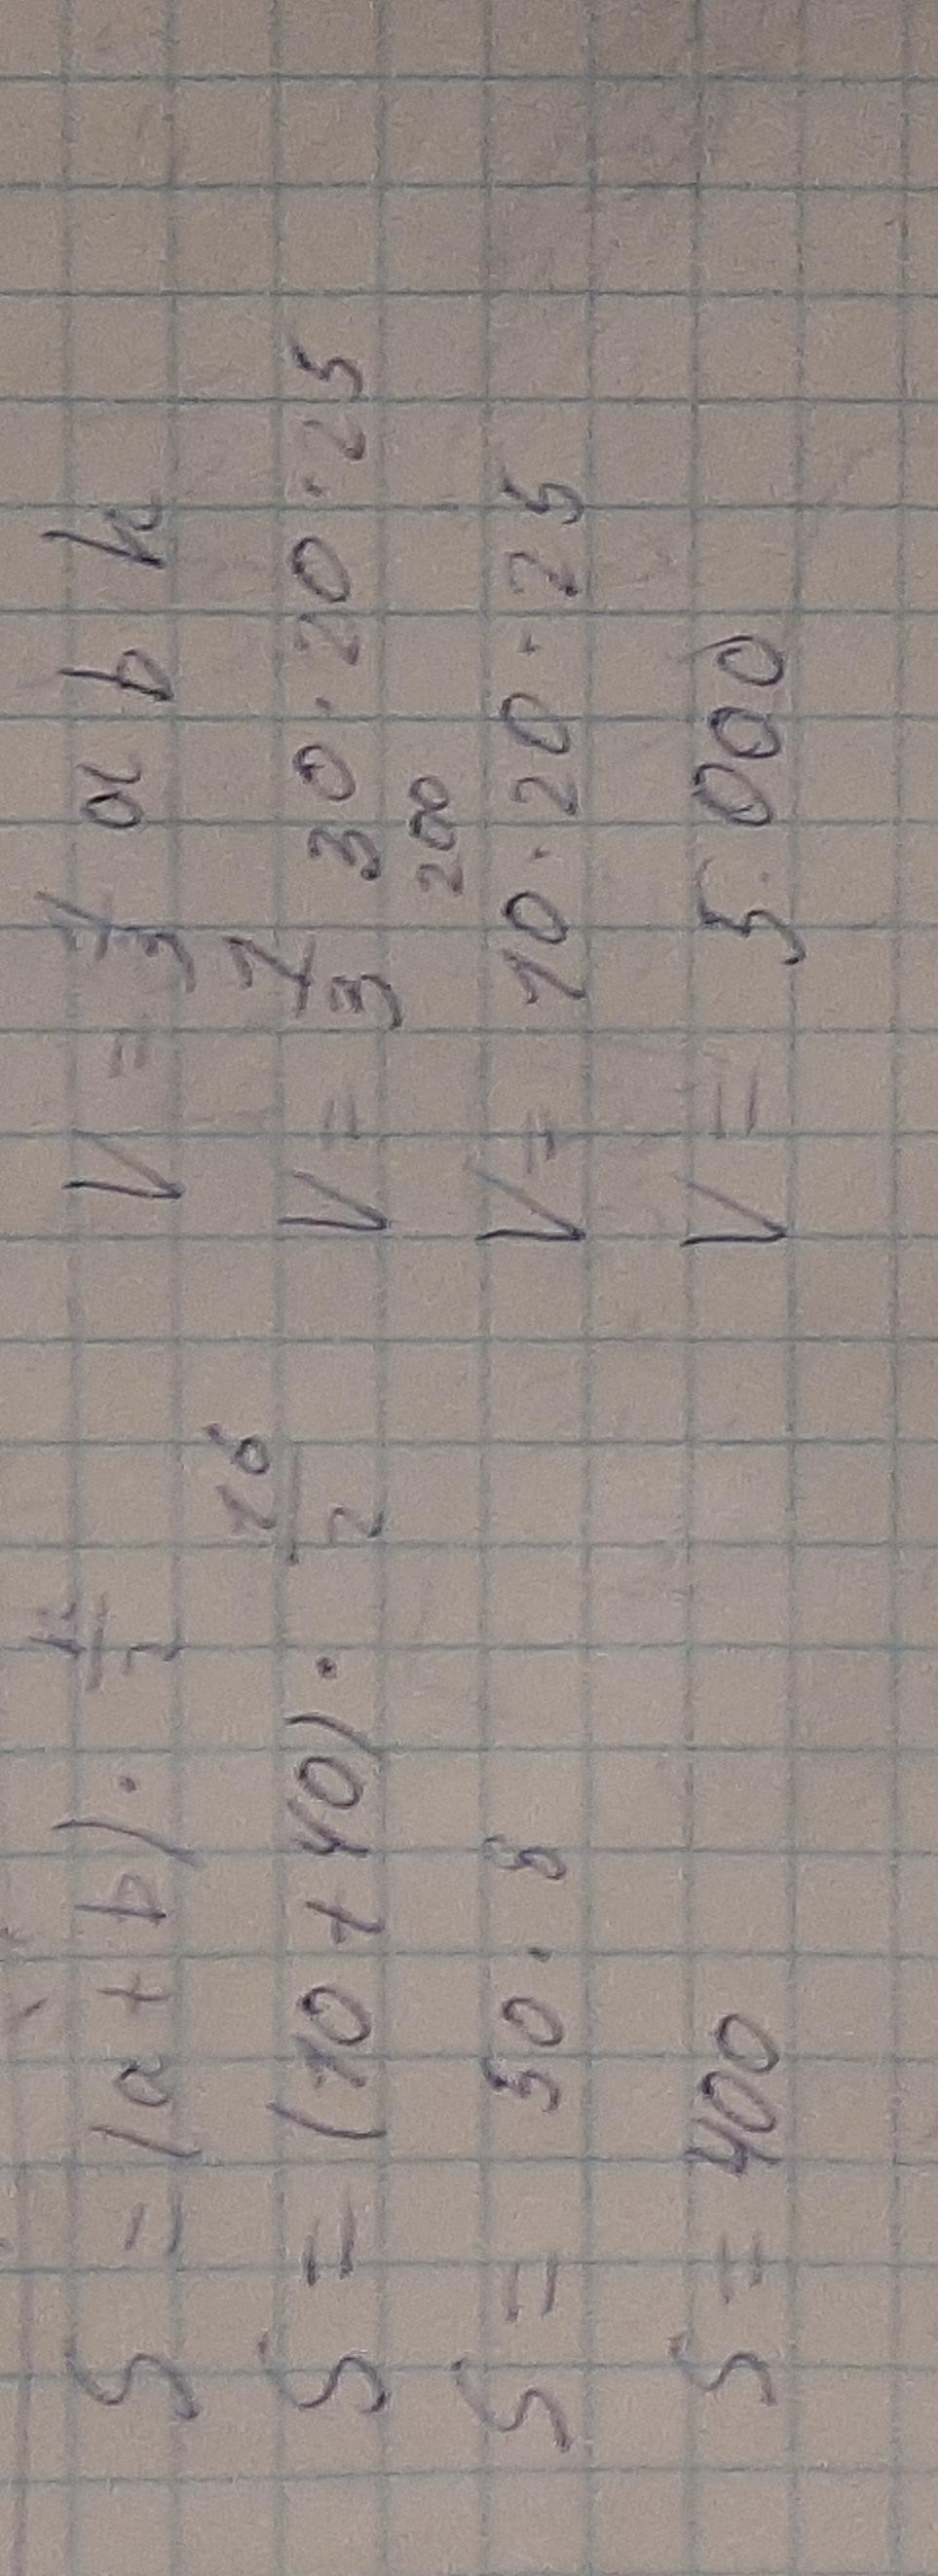 S = (a + b) · h/2
S = (10 + 40) · 16/2
S = 50 · 8
S = 400
V = 1/3 a b h
V = 1/3 30 · 20 · 25
200
V = 10 · 20 · 25
V = 5.000